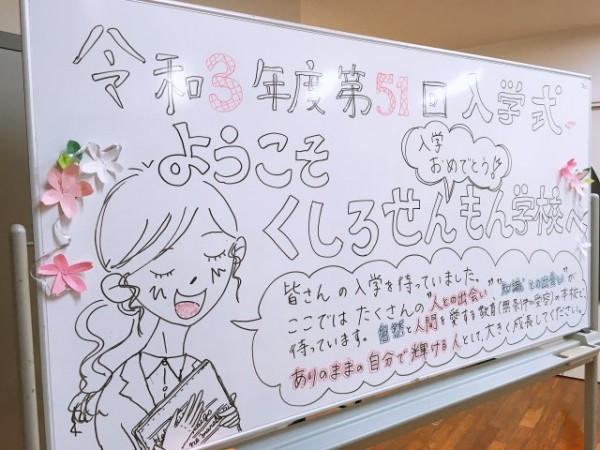 令和3年度第51回入学式
ようこそ
入学
おめでとう!!
くしろせんもん学校へ
皆さんの入学を待っていました。
ここではたくさんの"人との出会い""知識との出会い"が
待っています。自然と人間を愛する教育(無条件の受容)の本校で、
ありのままの自分で輝ける人として、大きく成長してください。